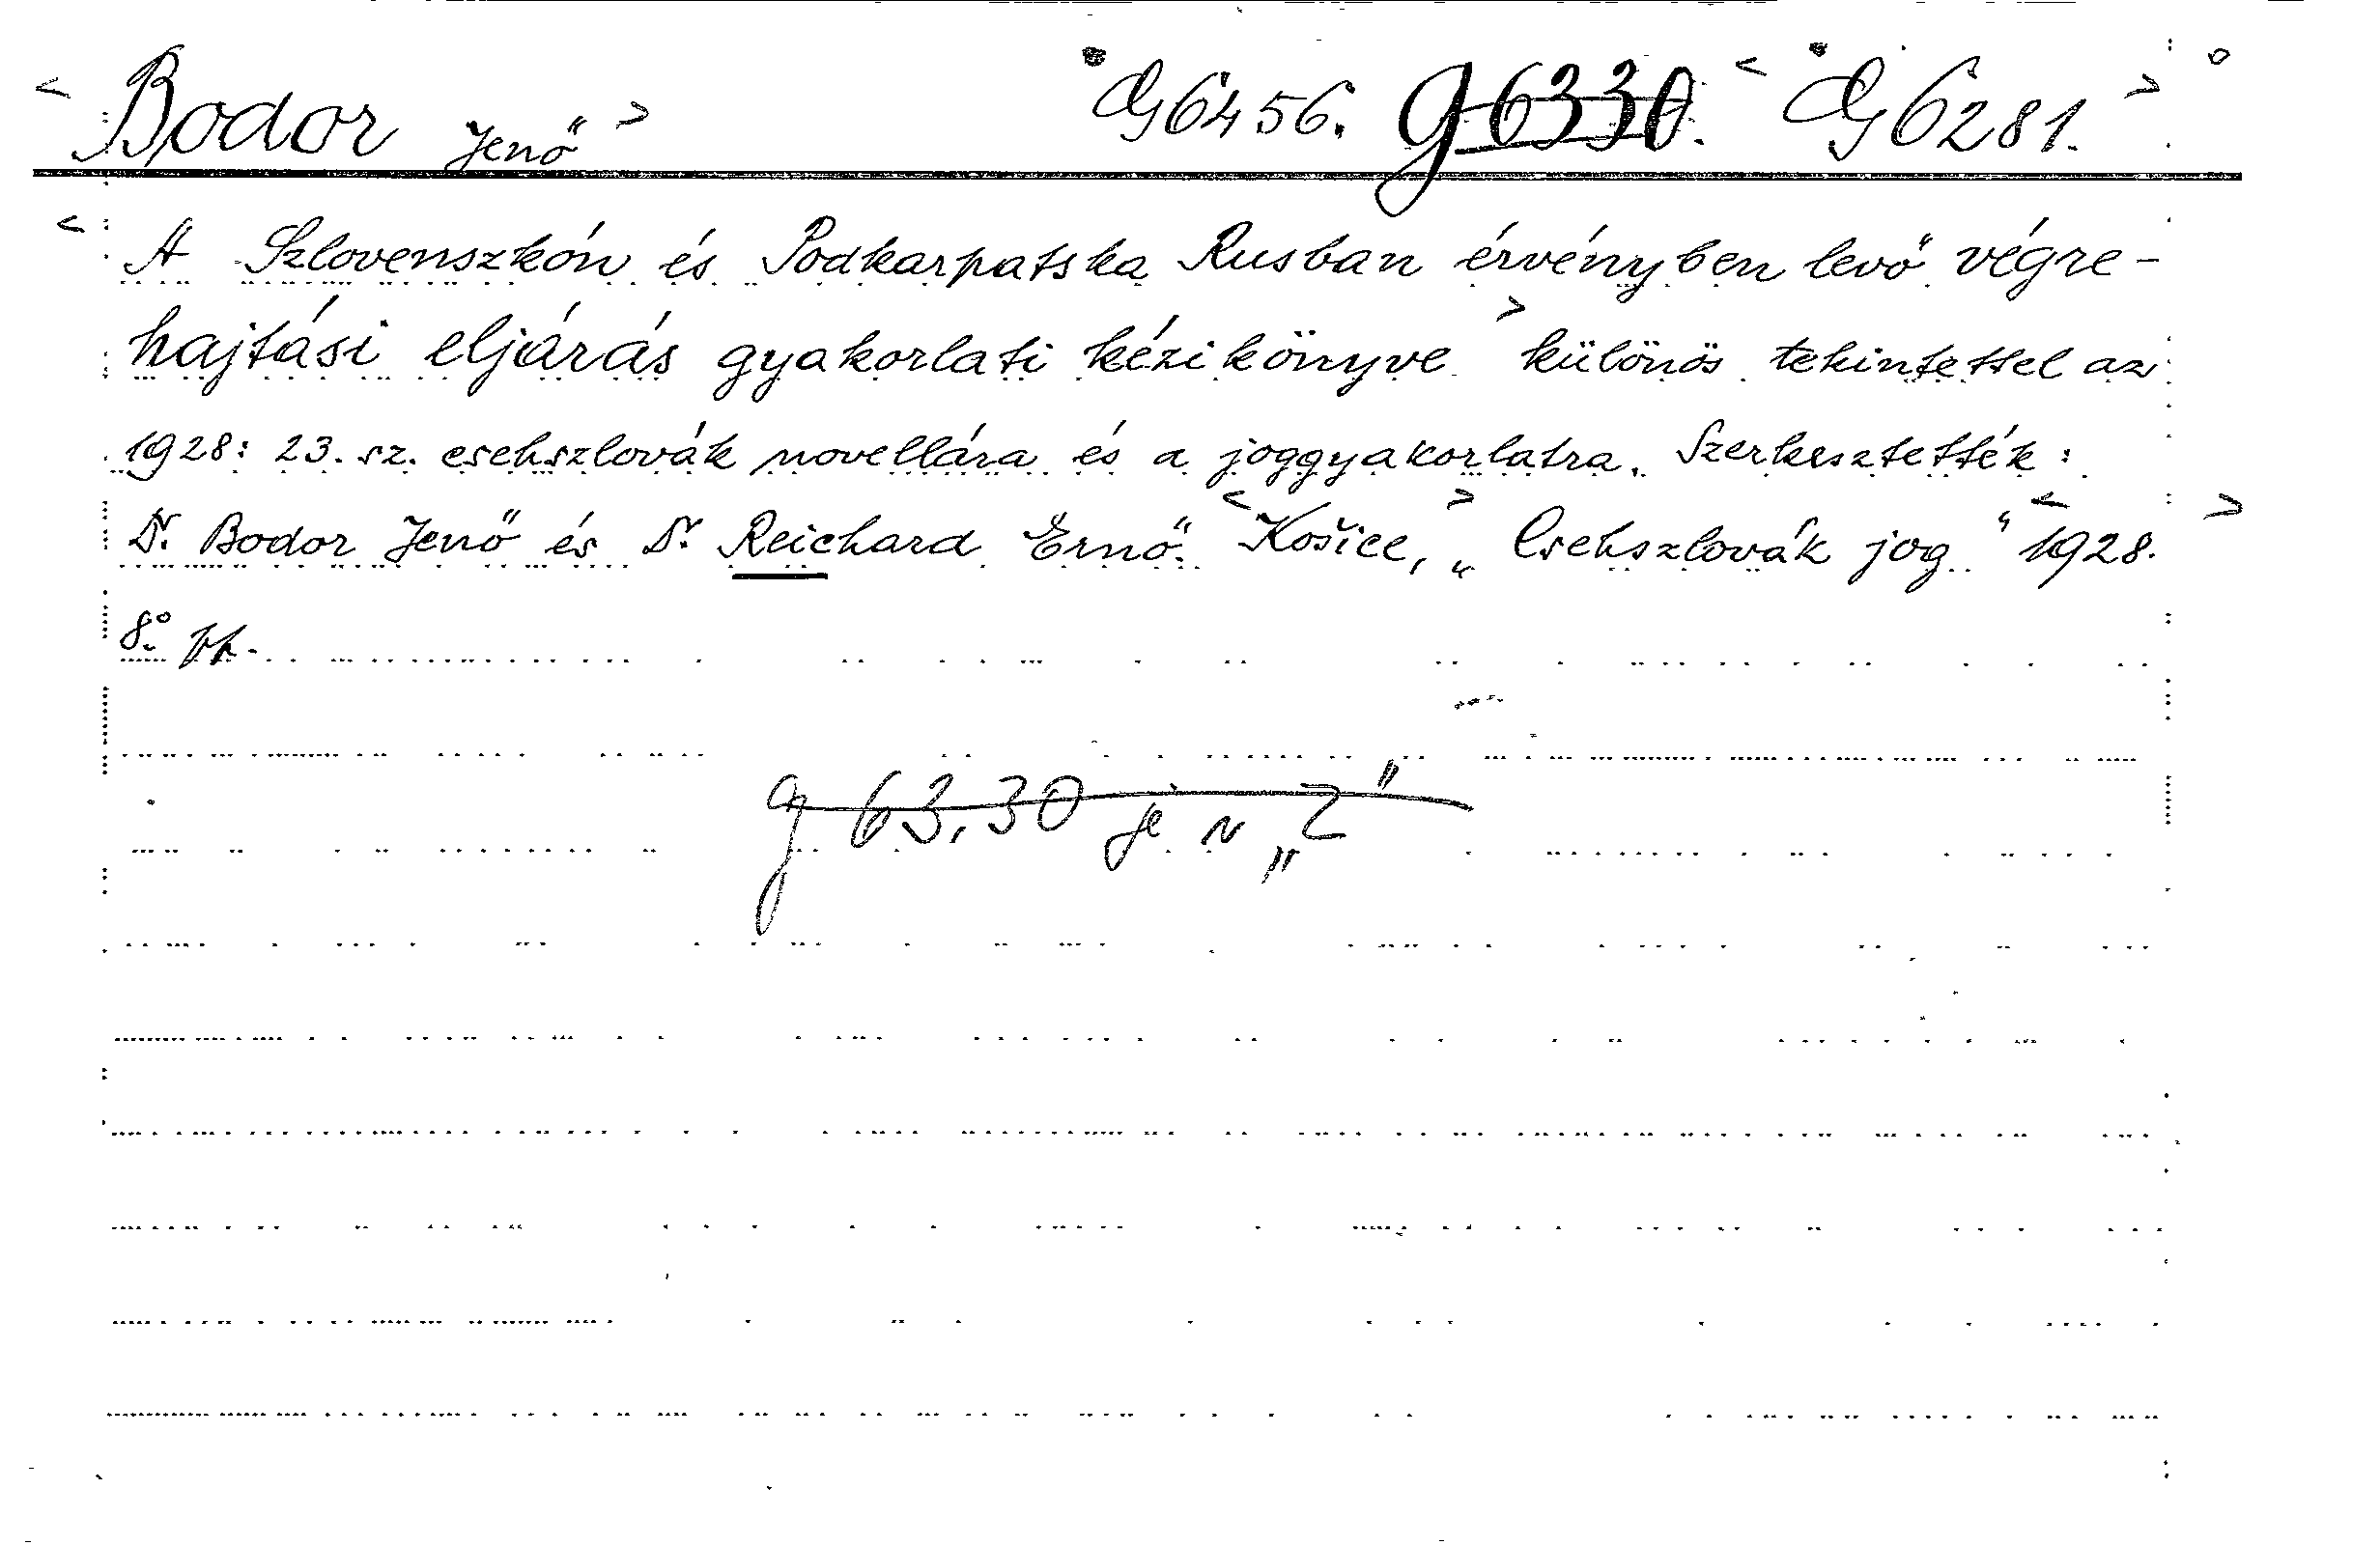 < Bodor Jenő > G6456. g6330. < G6281. >
< A Szlovenszkón és Podkarpatska Rusban érvényben levő végre-
hajtási eljárás gyakorlati kézikönyve > különös tekintettel az
1928: 23. sz. csehszlovák novellára és a joggyakorlatra. Szerkesztették:
Dr. Bodor Jenő és Dr. Reichard Ernő. < Košice, > „Csehszlovák jog" < 1928. >
8° pp.
g 63.30 je v „Z"